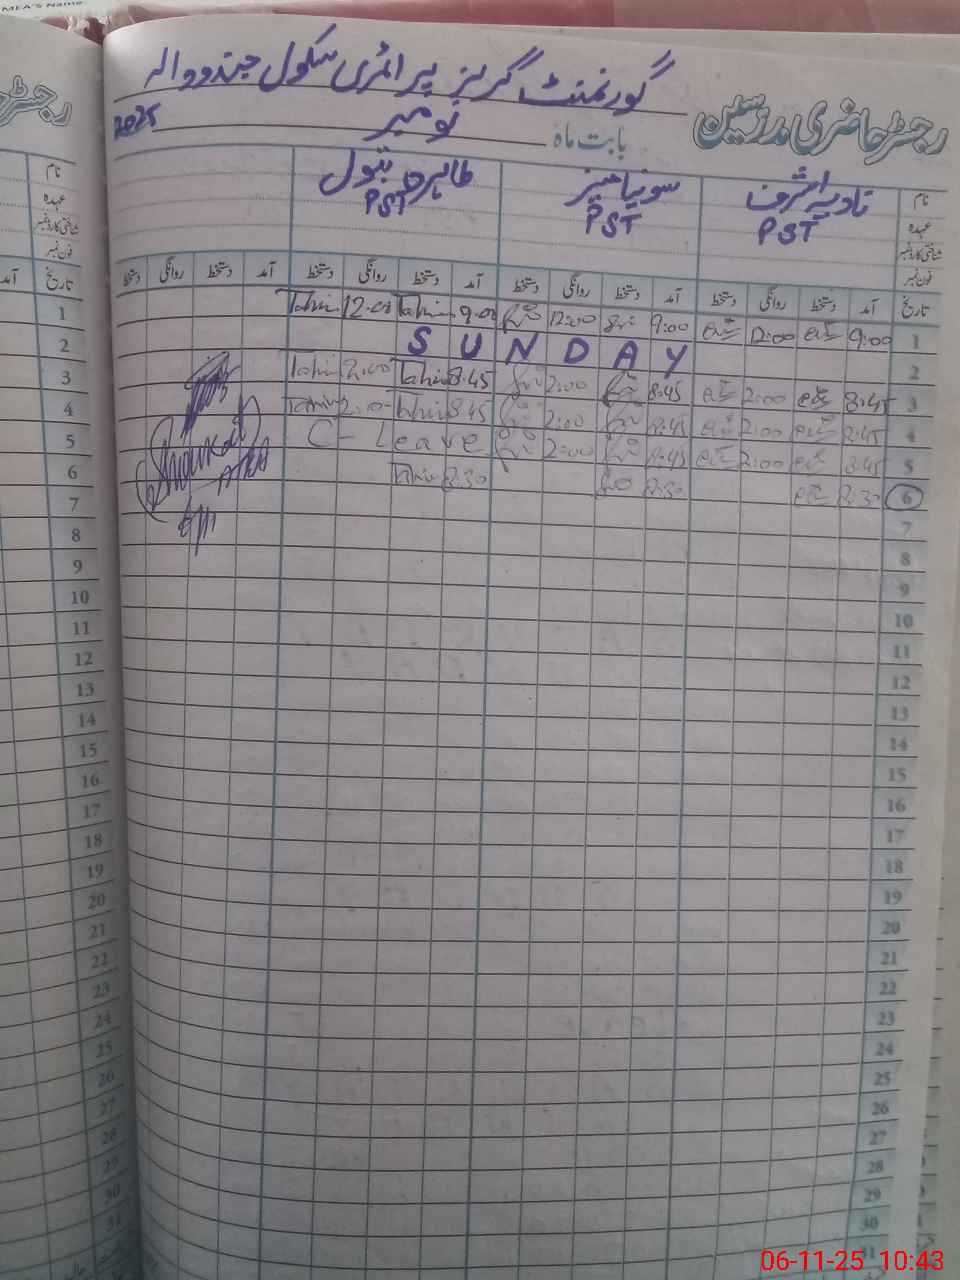 MEA's Name
گورنمنٹ گرلز پرائمری سکول جیندووالہ
رجسٹر حاضری مدرسین
بابت ماہ نومبر 2025
نام نادیہ اشرف سونیا طاہرہ بتول
عہدہ PST PST PST
شناختی کارڈ نمبر
فون نمبر
تاریخ آمد دستخط روانگی دستخط آمد دستخط روانگی دستخط آمد دستخط روانگی دستخط آمد دستخط روانگی دستخط
1 9:00 12:00 9:00 12:00 9.00 Tahir 12.00 Tahir
2 SUNDAY
3 8:45 2:00 8:45 2:00 8.45 Tahir 2:00 Tahir
4 8:45 2:00 8:45 2:00 8.45 Tahir 2:00 Tahir
5 8:45 2:00 8:45 2:00 C-Leave
6 8:30 8:30 8:30 Tahir
7
8
9
10
11
12
13
14
15
16
17
18
19
20
21
22
23
24
25
26
27
28
29
30
31
رجسٹر
نام
عہدہ
شناختی کارڈ نمبر
فون نمبر
تاریخ آمد
1
2
3
4
5
6
7
8
9
10
11
12
13
14
15
16
17
18
19
20
21
22
23
24
25
26
27
28
29
30
31
06-11-25 10:43